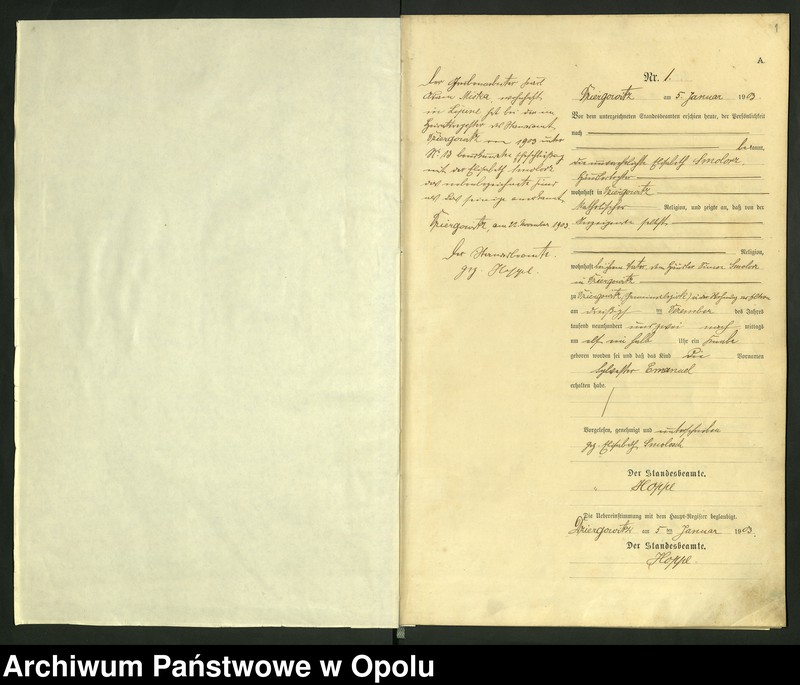 1
A.
Nr. 1.
Dziergowitz am 5. Januar 1903.
Vor dem unterzeichneten Standesbeamten erschien heute, der Persönlichkeit
nach
bekannt,
die unverehelichte Elisabeth Smolorz
Häuslertochter
wohnhaft in Dziergowitz
katholischer Religion, und zeigte an, daß von der
Religion,
wohnhaft bei ihrem Vater, dem Häusler Smolorz
in Dziergowitz
zu Dziergowitz
am dreißigsten Dezember des Jahres
tausend neunhundert und zwei nach mittags
um elf ein halb Uhr ein Knabe
geboren worden sei und daß das Kind die Vornamen
Sylvester Emanuel
erhalten habe.
Vorgelesen, genehmigt und unterschrieben
gez. Elisabeth
Der Standesbeamte.
Hoppe
Die Uebereinstimmung mit dem Haupt-Register beglaubigt.
Dziergowitz am 5 ten Januar 1903.
Der Standesbeamte.
Hoppe.
Der Grubenarbeiter
wohnhaft
in Lipine hat bei der im
Heiratsregister des Standesamts
Dziergowitz von 1903 unter
Nr. 13 Eheschließung
mit der Elisabeth Smolorz
das nebenbezeichnete Kind
als das seinige anerkannt.
Dziergowitz, am 22. November 1903
Der Standesbeamte.
gez. Hoppe.
Archiwum Państwowe w Opolu